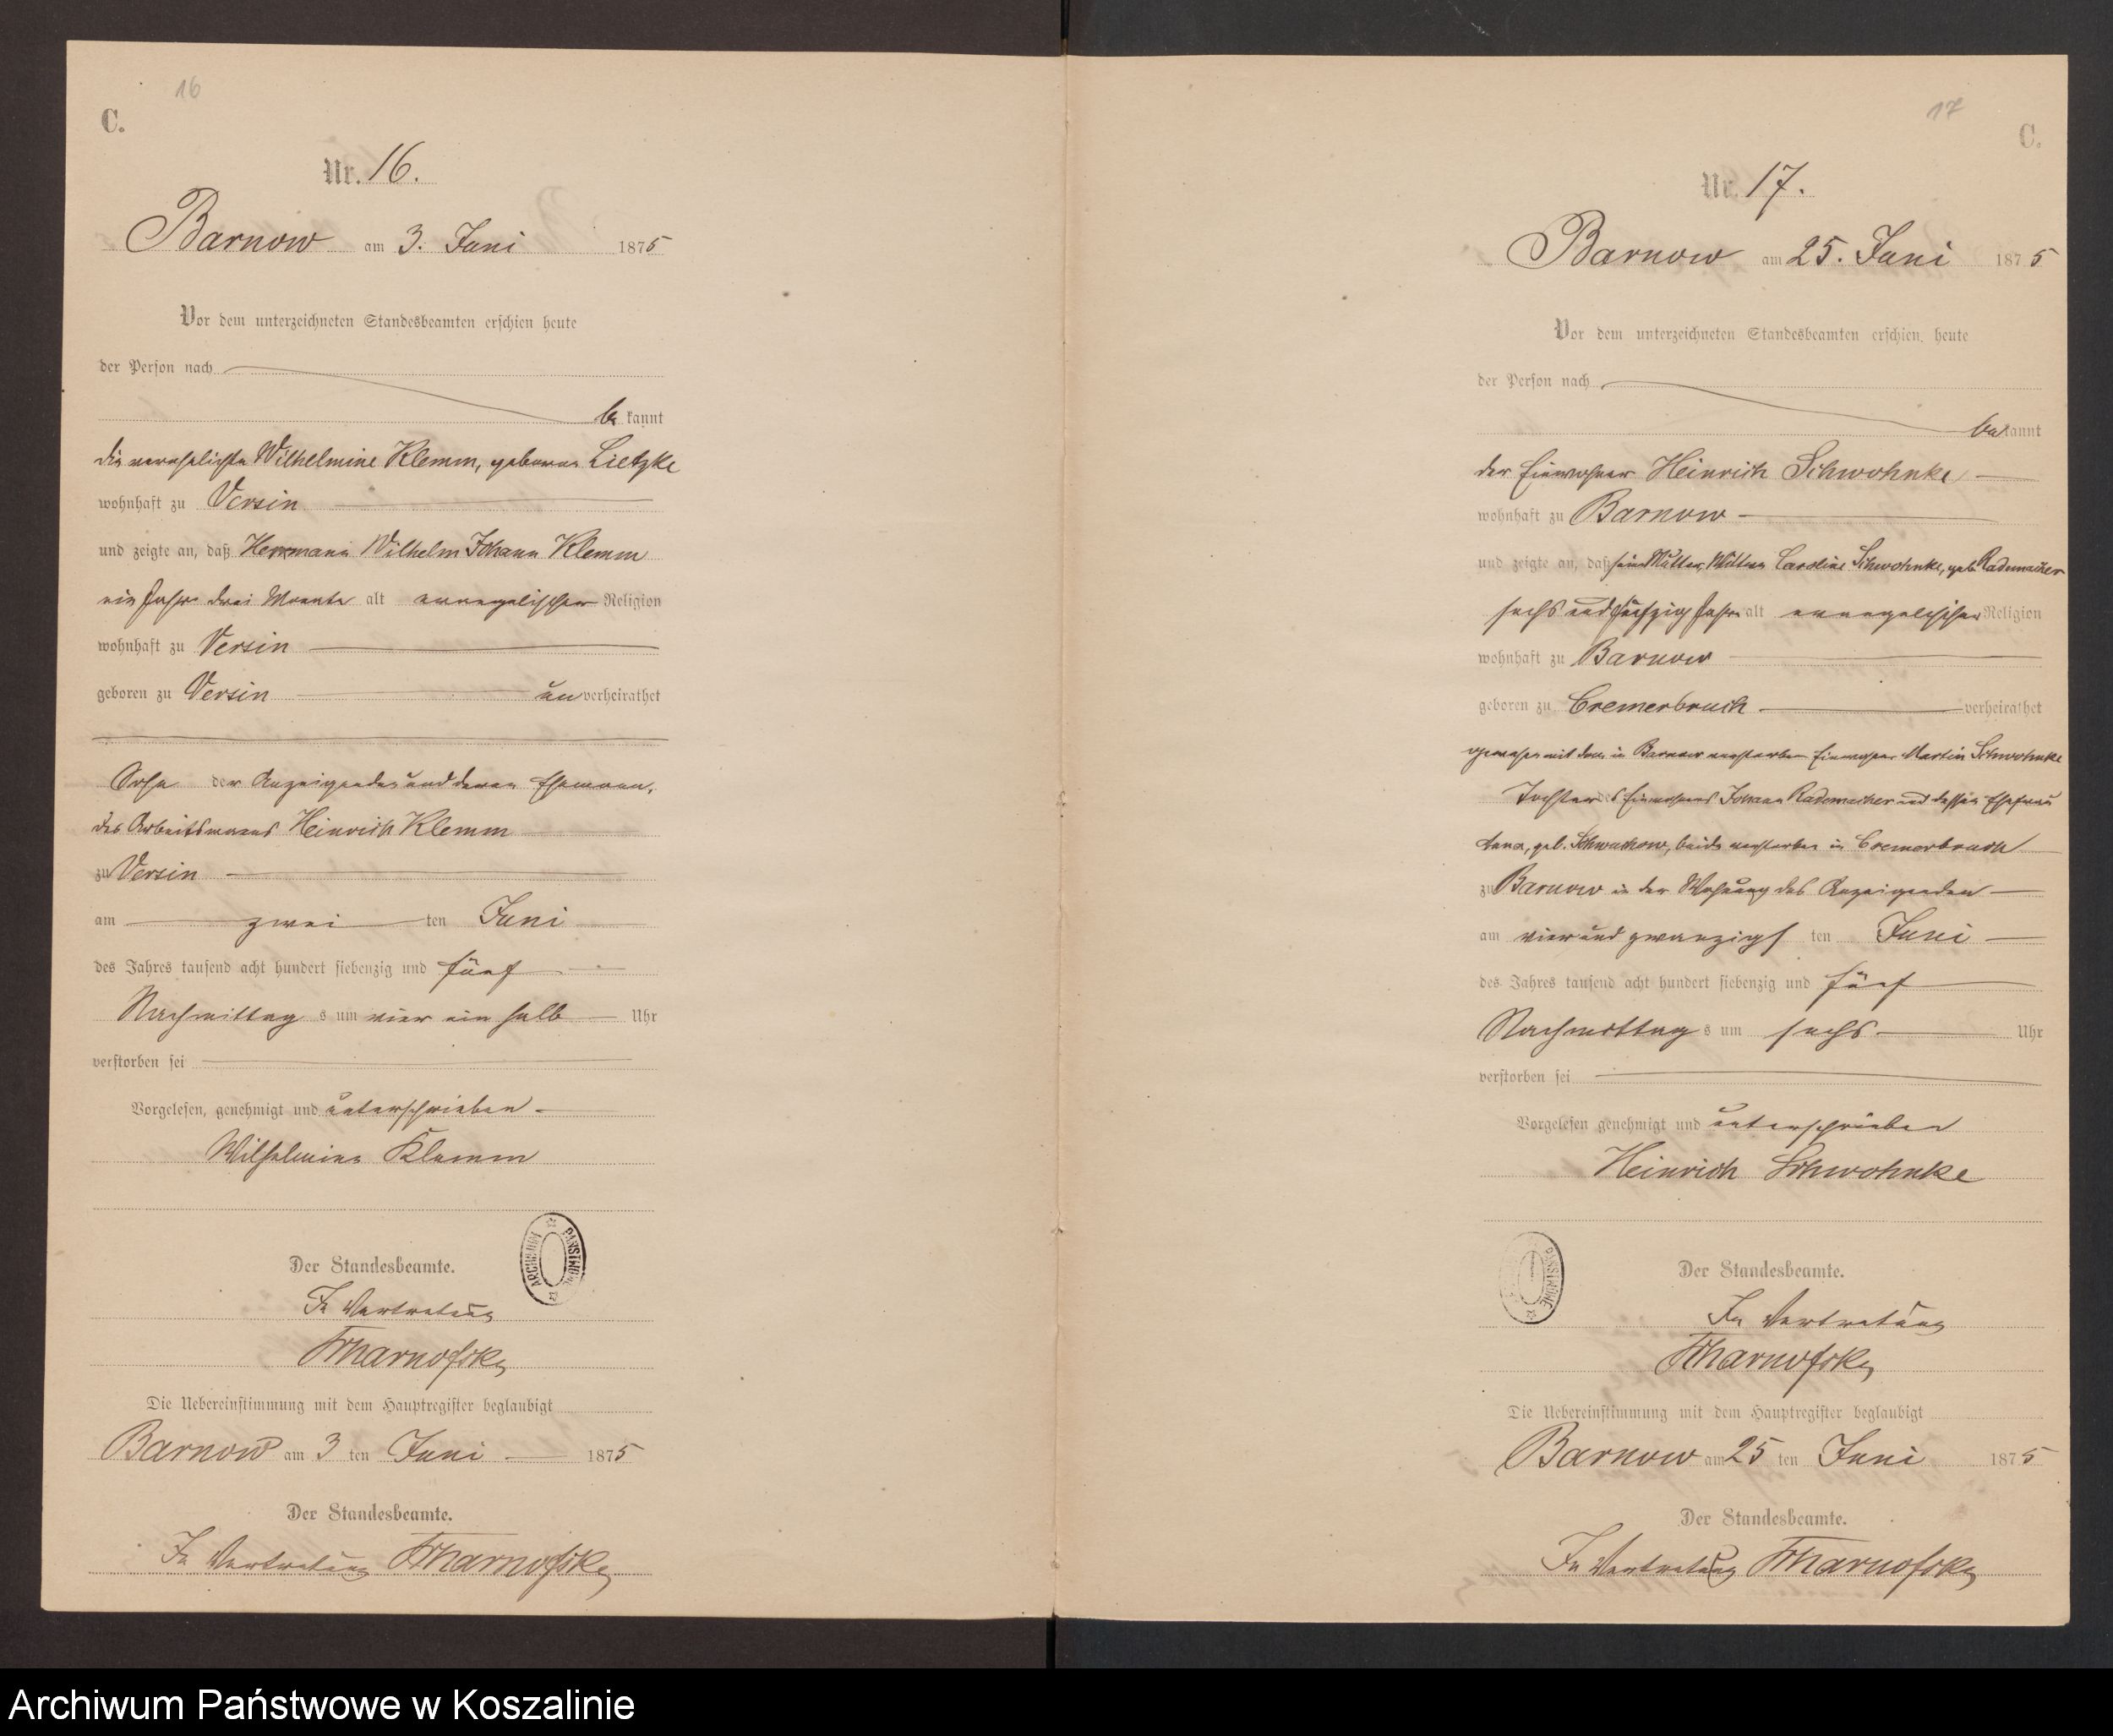 16
C.
Nr. 16.
Barnow am 3. Juni 1875
Vor dem unterzeichneten Standesbeamten erschien heute
der Person nach
be kannt
die verehelichte Wilhelmine Klemm, geborene Lietzke
wohnhaft zu Versin
und zeigte an, daß Herrmann Wilhelm Johann Klemm
ein Jahr drei Monate alt evangelischer Religion
wohnhaft zu Versin
geboren zu Versin un verheirathet
Sohn der Anzeigenden und deren Ehemann,
des Arbeitsmanns Heinrich Klemm
zu Versin
am zwei ten Juni
des Jahres tausend acht hundert siebenzig und fünf
Nachmittag s um vier ein halb Uhr
verstorben sei
Vorgelesen, genehmigt und unterschrieben
Wilhelmine Klemm
ARCHIWUM PAŃSTWOWE
Der Standesbeamte.
In Vertretung
Die Uebereinstimmung mit dem Hauptregister beglaubigt
Barnow am 3 ten Juni 1875
Der Standesbeamte.
In Vertretung
17
C.
Nr. 17.
Barnow am 25. Juni 1875
Vor dem unterzeichneten Standesbeamten erschien heute
der Person nach
be kannt
der Einwohner Heinrich Schwohnke,
wohnhaft zu Barnow
und zeigte an, daß seine Mutter, Wittwe Caroline Schwohnke, geb. Rademacher
sechs und fünfzig Jahre alt evangelischer Religion
wohnhaft zu Barnow
geboren zu Cremerbruch verheirathet
gewesen mit dem in Barnow verstorbenen Einwohner Martin Schwohnke
Tochter des Einwohners Johann Rademacher und dessen Ehefrau
geb. Schwuchow, beide verstorben in Cremerbruch
zu Barnow in der Wohnung des Anzeigenden
am vier und zwanzigs ten Juni
des Jahres tausend acht hundert siebenzig und fünf
Nachmittag s um sechs Uhr
verstorben sei
Vorgelesen genehmigt und unterschrieben
Heinrich Schwohnke
PAŃSTWOWE
Der Standesbeamte.
In Vertretung
Die Uebereinstimmung mit dem Hauptregister beglaubigt
Barnow am 25 ten Juni 1875
Der Standesbeamte.
In Vertretung
Archiwum Państwowe w Koszalinie